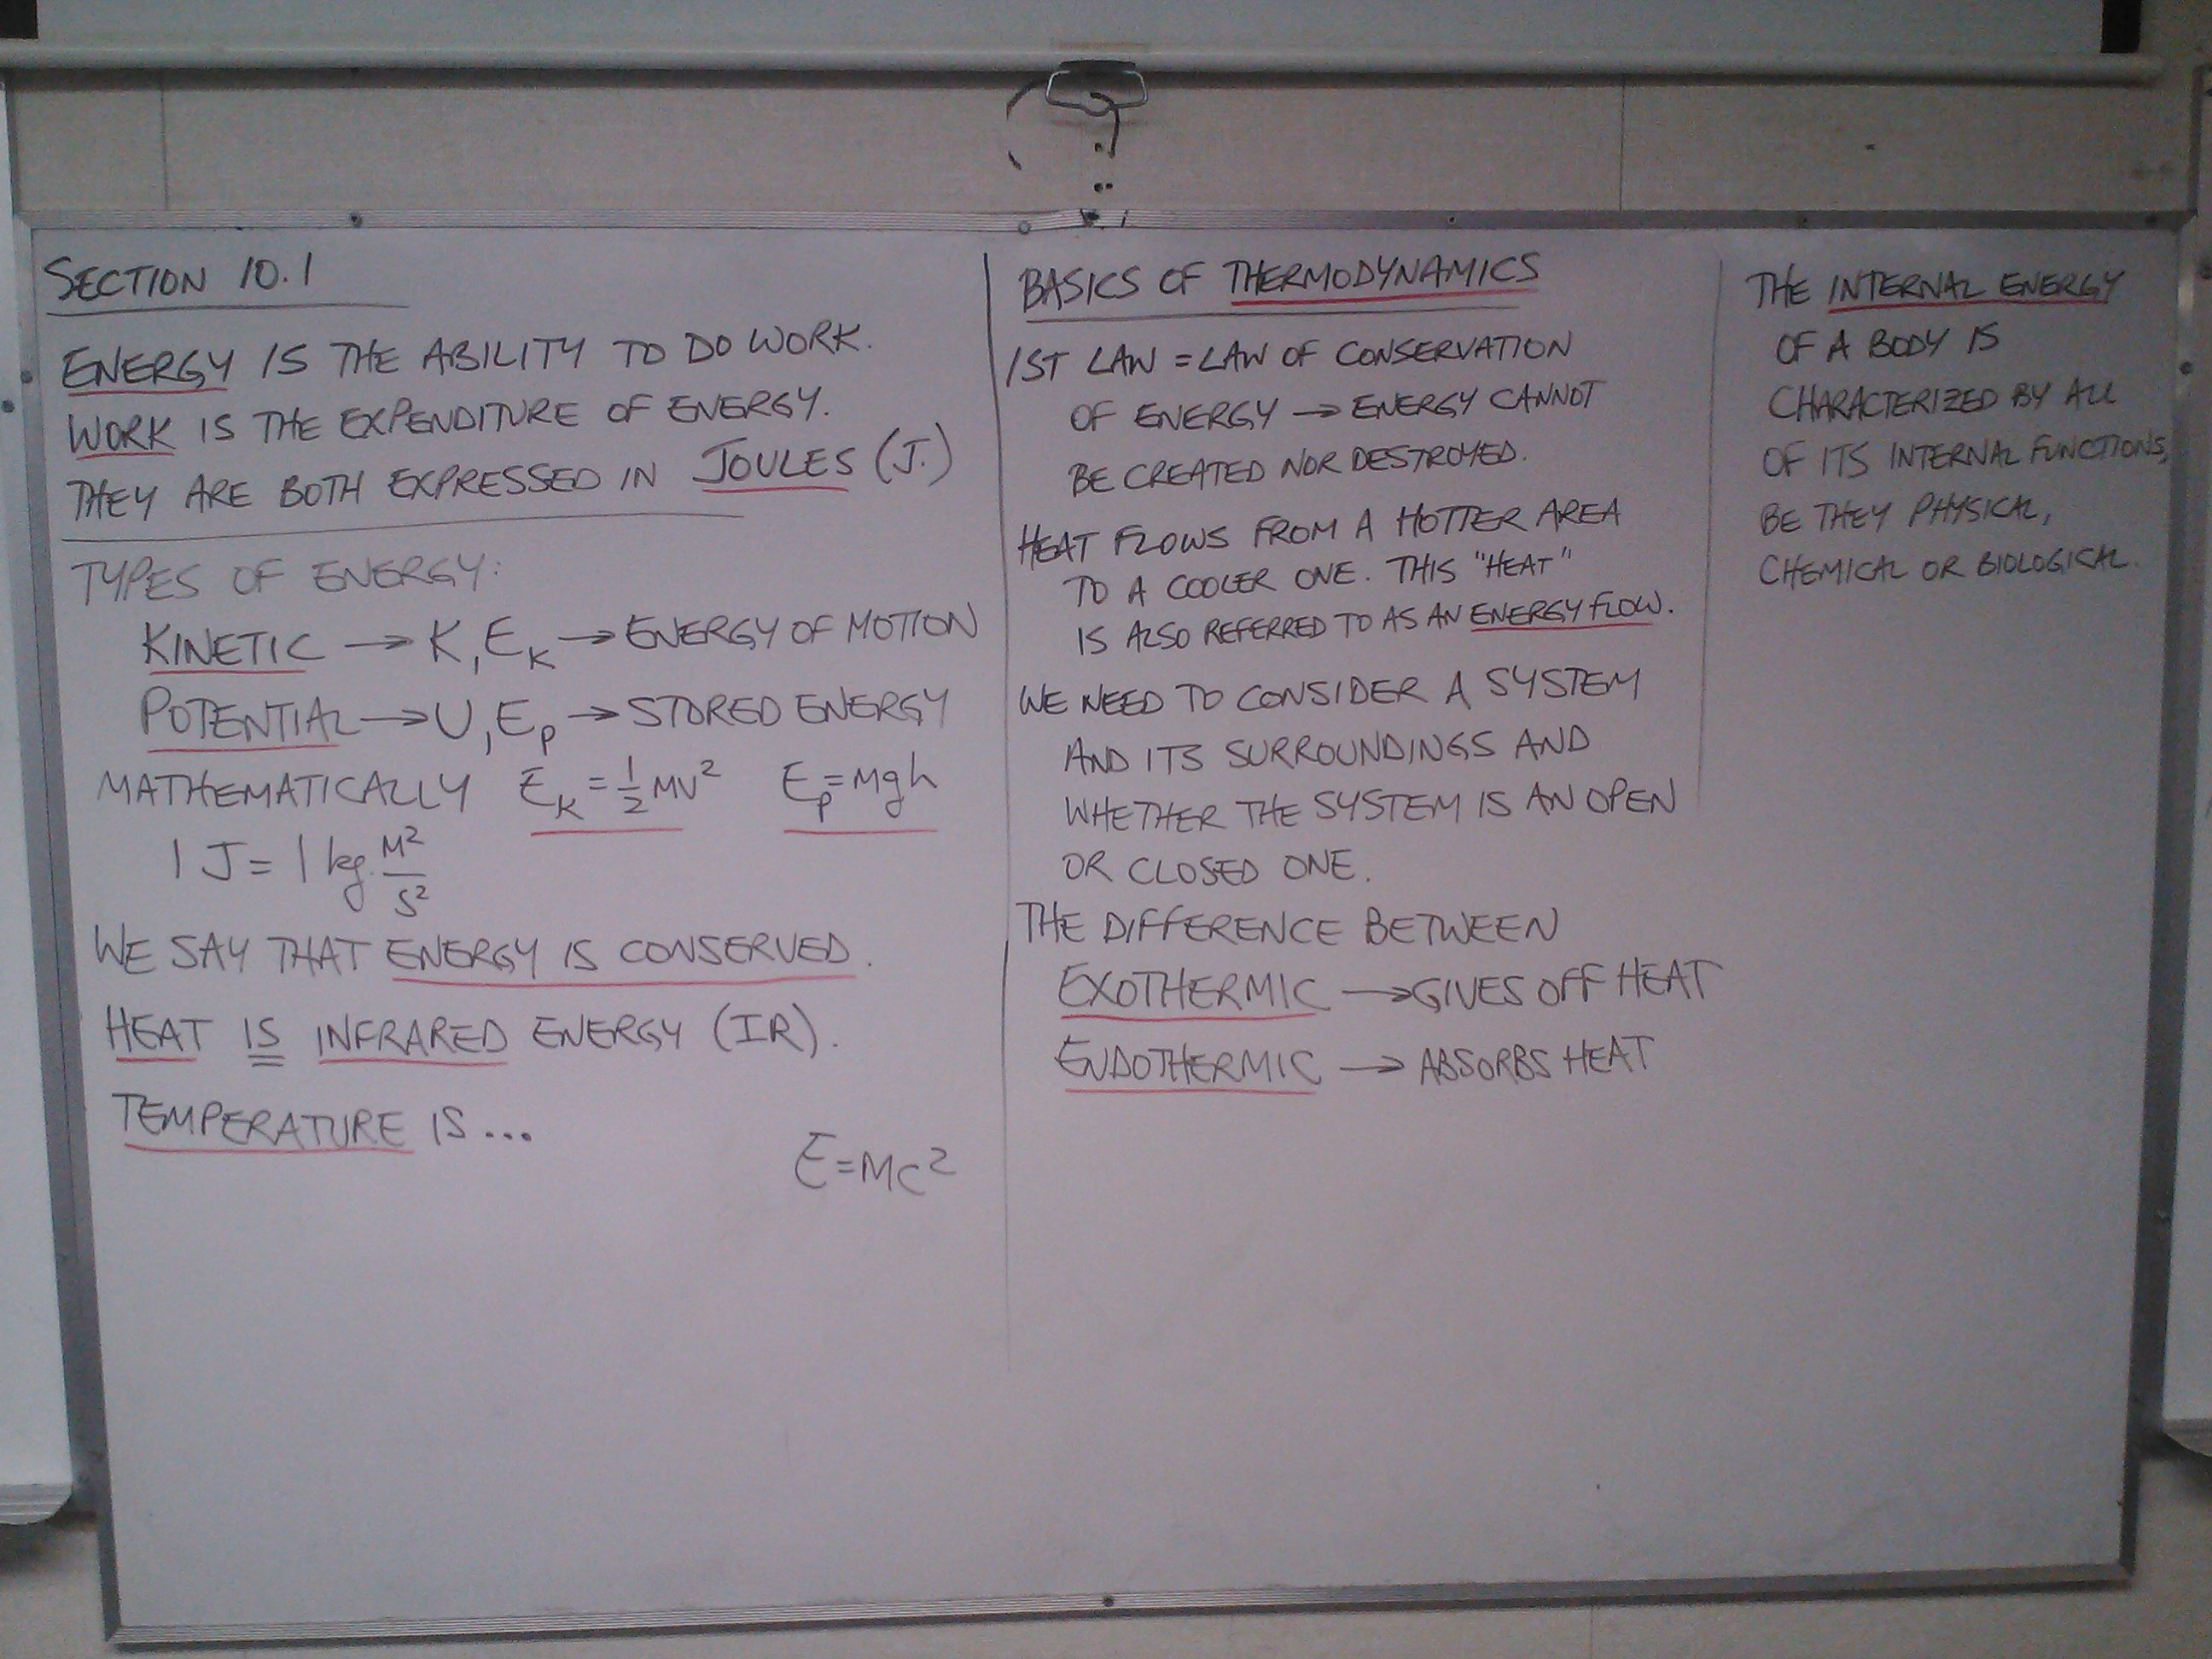 SECTION 10.1
ENERGY IS THE ABILITY TO DO WORK.
WORK IS THE EXPENDITURE OF ENERGY.
THEY ARE BOTH EXPRESSED IN JOULES (J.)
TYPES OF ENERGY:
KINETIC → K, E_K → ENERGY OF MOTION
POTENTIAL → U, E_P → STORED ENERGY
MATHEMATICALLY E_K = 1/2 MV² E_P = Mgh
1 J = 1 kg · M²/S²
WE SAY THAT ENERGY IS CONSERVED.
HEAT IS INFRARED ENERGY (IR).
TEMPERATURE IS...
E = MC²
BASICS OF THERMODYNAMICS
1ST LAW = LAW OF CONSERVATION
OF ENERGY → ENERGY CANNOT
BE CREATED NOR DESTROYED.
HEAT FLOWS FROM A HOTTER AREA
TO A COOLER ONE. THIS "HEAT"
IS ALSO REFERRED TO AS AN ENERGY FLOW.
WE NEED TO CONSIDER A SYSTEM
AND ITS SURROUNDINGS AND
WHETHER THE SYSTEM IS AN OPEN
OR CLOSED ONE.
THE DIFFERENCE BETWEEN
EXOTHERMIC → GIVES OFF HEAT
ENDOTHERMIC → ABSORBS HEAT
THE INTERNAL ENERGY
OF A BODY IS
CHARACTERIZED BY ALL
OF ITS INTERNAL FUNCTIONS,
BE THEY PHYSICAL,
CHEMICAL OR BIOLOGICAL.